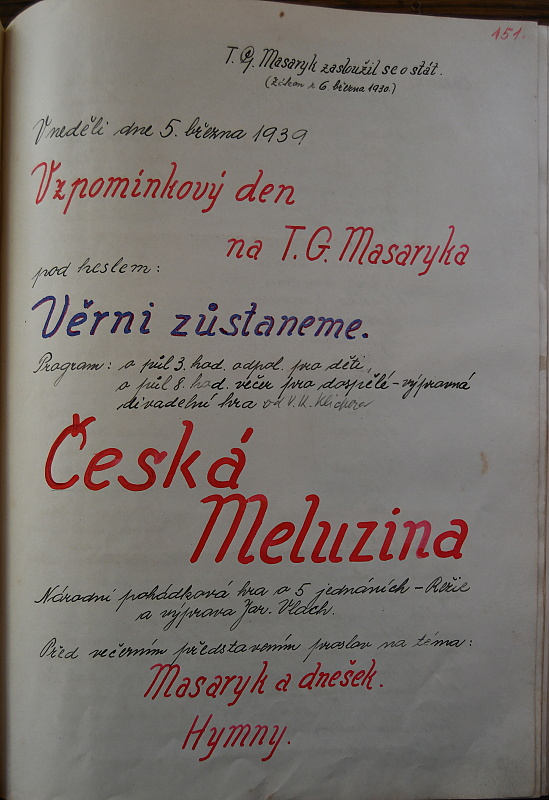 151.
T. G. Masaryk zasloužil se o stát.
(Zákon z 6. března 1930.)
V neděli dne 5. března 1939
Vzpomínkový den
na T. G. Masaryka
pod heslem:
Věrni zůstaneme.
Program: o půl 3. hod. odpol. pro děti,
o půl 8. hod. večer pro dospělé - výpravná
divadelní hra od V. K. Klicpera
Česká
Meluzina
Národní pohádková hra o 5 jednáních - Režie
a výprava Jar. Vlach.
Před večerním představením proslov na téma:
Masaryk a dnešek.
Hymny.